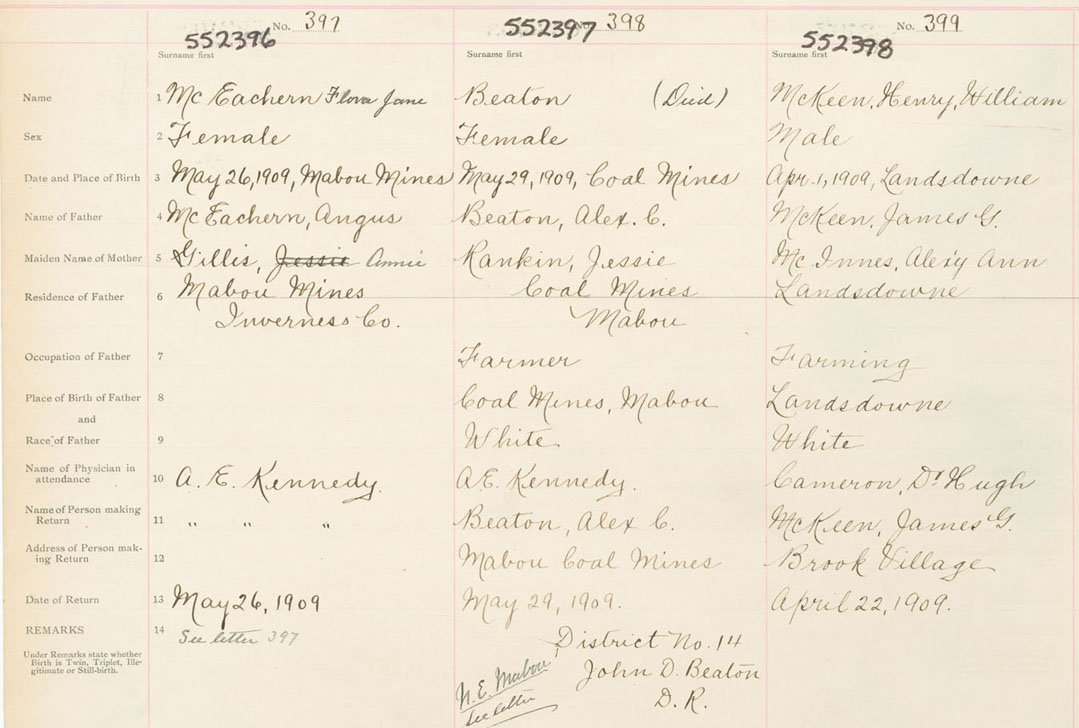 No. 397 No. 398 No. 399
552396 552397 552398
Surname first Surname first Surname first
Name 1 McEachern Flora Jane Beaton (Died) McKeen, Henry, William
Sex 2 Female Female Male
Date and Place of Birth 3 May 26, 1909, Mabou Mines May 29, 1909, Coal Mines Apr. 1, 1909, Landsdowne
Name of Father 4 McEachern, Angus Beaton, Alex. C. McKeen, James G.
Maiden Name of Mother 5 Gillis, Jessie Annie Rankin, Jessie McInnes, Alexy Ann
Residence of Father 6 Mabou Mines Coal Mines Landsdowne
Inverness Co. Mabou
Occupation of Father 7 Farmer Farming
Place of Birth of Father 8 Coal Mines, Mabou Landsdowne
and
Race of Father 9 White White
Name of Physician in
attendance 10 A. E. Kennedy. A.E. Kennedy. Cameron, Dr Hugh
Name of Person making
Return 11 " " " Beaton, Alex C. McKeen, James G.
Address of Person mak-
ing Return 12 Mabou Coal Mines Brook Village
Date of Return 13 May 26, 1909 May 29, 1909. April 22, 1909.
REMARKS 14 See letter 397 District No. 14
Under Remarks state whether
Birth is Twin, Triplet, Ille-
gitimate or Still-birth.
N.E. Mabou John D. Beaton
see letter D. R.